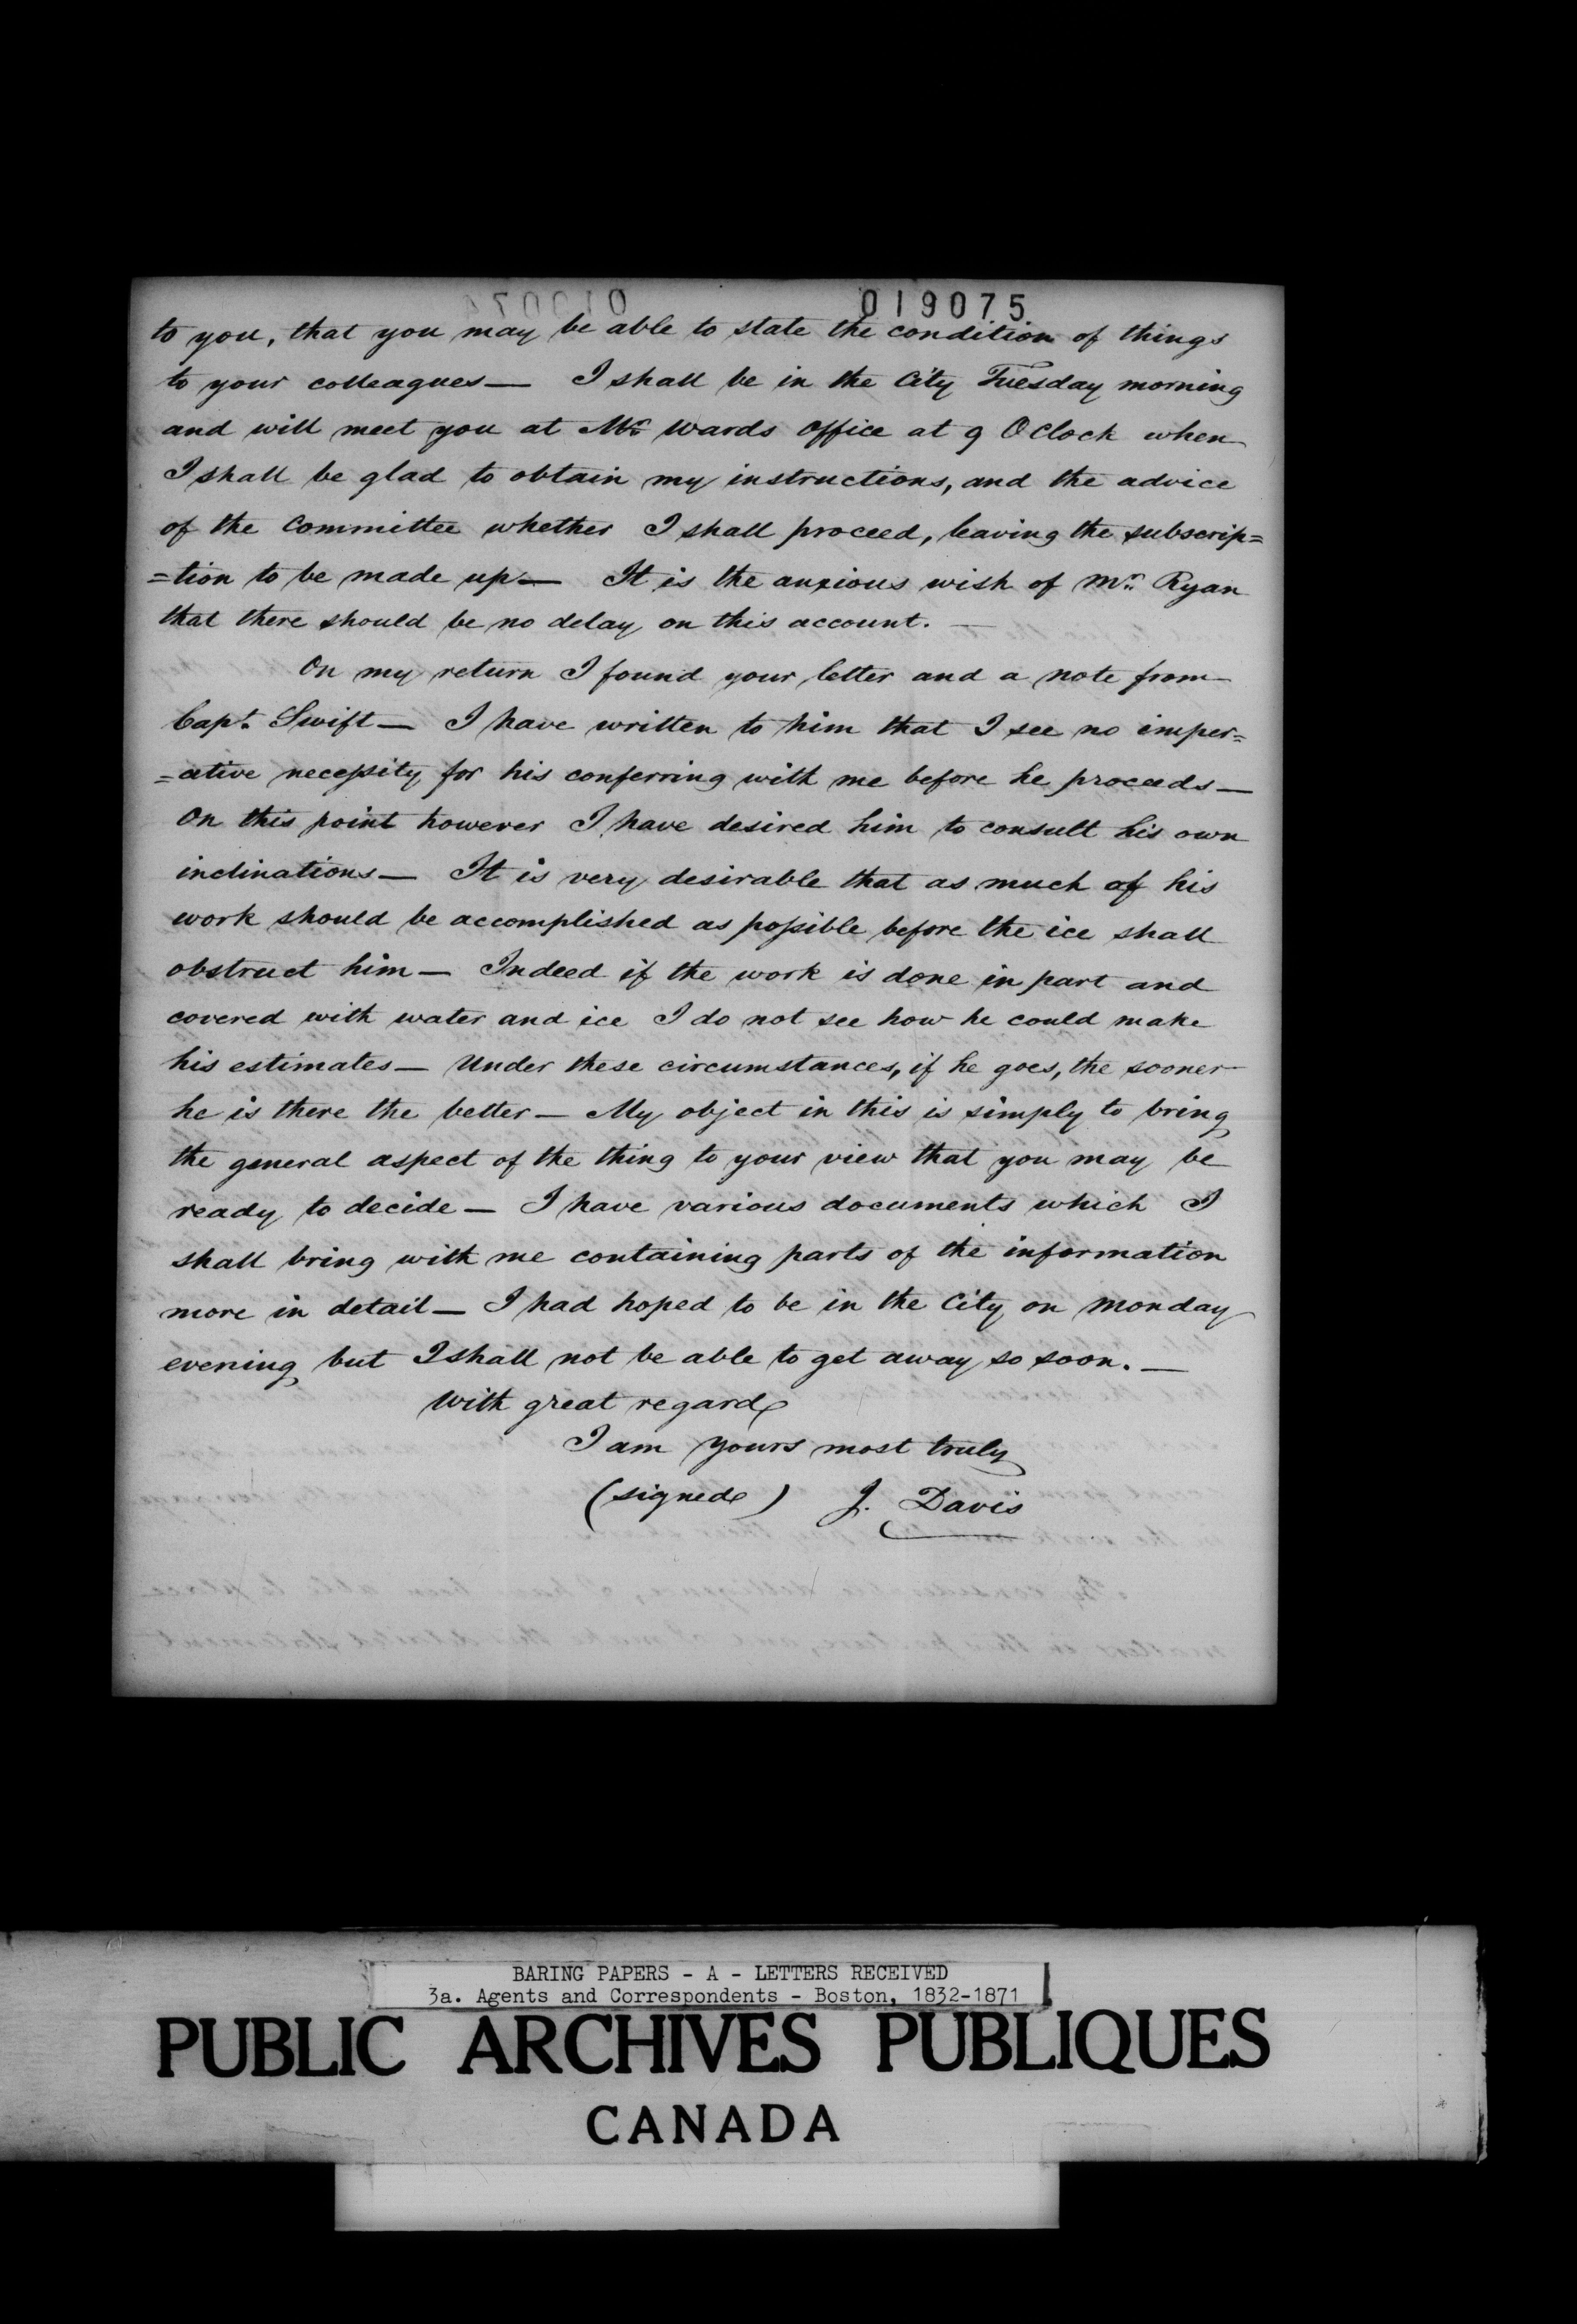 019075
to you, that you may be able to state the condition of things
to your colleagues — I shall be in the City Tuesday morning
and will meet you at Mr. Wards Office at 9 OClock when
I shall be glad to obtain my instructions, and the advice
of the Committee whether I shall proceed, leaving the subscrip=
=tion to be made up — It is the anxious wish of Mr. Ryan
that there should be no delay on this account. —
On my return I found your letter and a note from
Capt. Swift — I have written to him that I see no imper=
=ative necessity for his conferring with me before he proceeds —
On this point however I have desired him to consult his own
inclinations — It is very desirable that as much of his
work should be accomplished as possible before the ice shall
obstruct him — Indeed if the work is done in part and
covered with water and ice I do not see how he could make
his estimates — Under these circumstances, if he goes, the sooner
he is there the better — My object in this is simply to bring
the general aspect of the thing to your view that you may be
ready to decide — I have various documents which I
shall bring with me containing parts of the information
more in detail — I had hoped to be in the City on Monday
evening but I shall not be able to get away so soon. —
With great regard
I am yours most truly
(signed) J. Davis
BARING PAPERS - A - LETTERS RECEIVED
3a. Agents and Correspondents - Boston, 1832-1871
PUBLIC ARCHIVES PUBLIQUES
CANADA